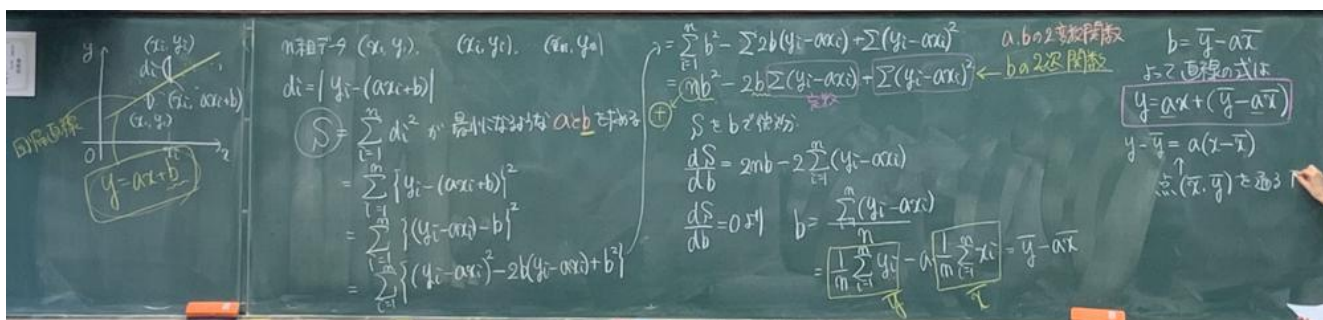 y
(xi, yi)
di
(xi, axi+b)
(x1, y1)
回帰直線
O
xi
x
y=ax+b
n組データ (x1, y1), (xi, yi), (xn, yn)
di=|yi-(axi+b)|
S=∑[i=1→n] di² が 最小になるような aとb を求める
=∑[i=1→n] {yi-(axi+b)}²
=∑[i=1→n] {(yi-axi)-b}²
=∑[i=1→n] {(yi-axi)²-2b(yi-axi)+b²}
=∑[i=1→n] b²-∑2b(yi-axi)+∑(yi-axi)²
a,bの2変数関数
=nb²-2b∑(yi-axi)+∑(yi-axi)² ← bの2次関数
⊕
定数
Sをbで微分
dS/db=2nb-2∑[i=1→n](yi-axi)
dS/db=0より b=∑[i=1→n](yi-axi)/n
=1/n ∑[i=1→n] yi-a 1/n ∑[i=1→n] xi=ȳ-ax̄
ȳ x̄
b=ȳ-ax̄
よって直線の式は
y=ax+(ȳ-ax̄)
y-ȳ=a(x-x̄)
↑
点(x̄, ȳ)を通る